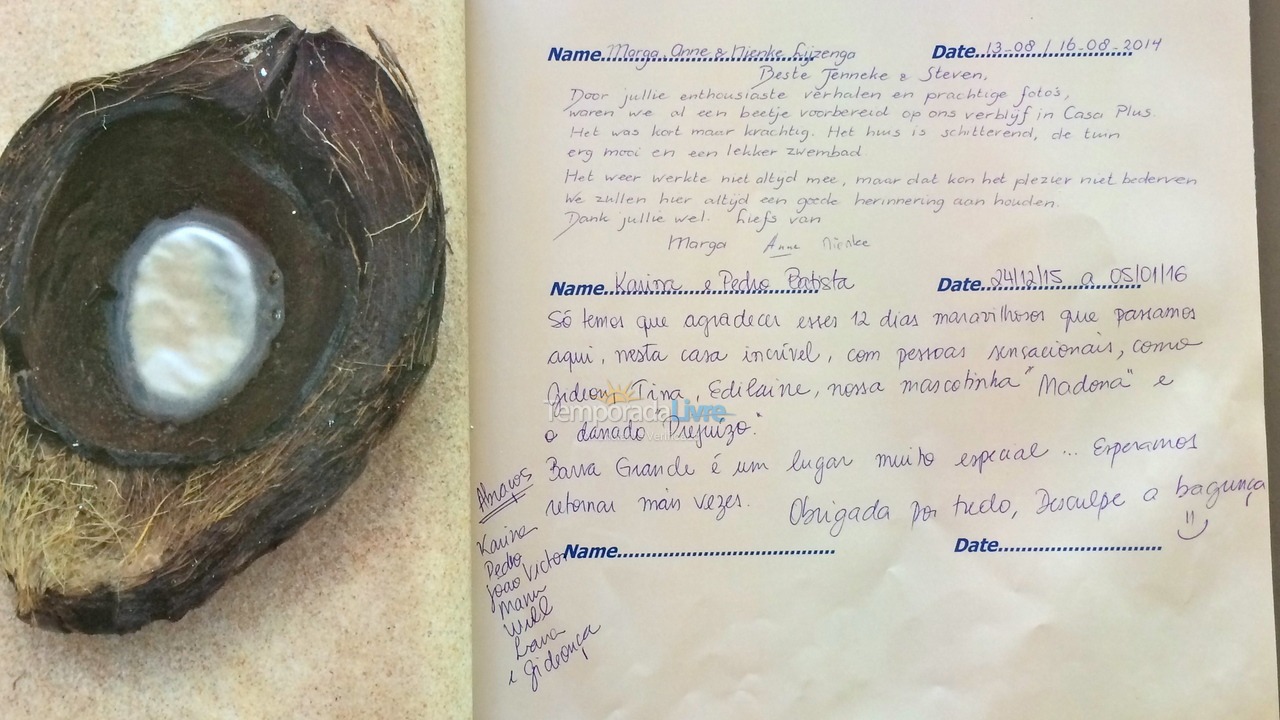 Name Marga, Anne & Nienke Lijzenga Date 13-08 / 16-08-2014
Beste Jenneke & Steven,
Door jullie enthousiaste verhalen en prachtige foto's,
waren we al een beetje voorbereid op ons verblijf in Casa Plus.
Het was kort maar krachtig. Het huis is schitterend, de tuin
erg mooi en een lekker zwembad.
Het weer werkte niet altijd mee, maar dat kon het plezier niet bederven
We zullen hier altijd een goede herinnering aan houden.
Dank jullie wel. Liefs van
Marga Anne Nienke
Name Karina e Pedro Batista Date 24/12/15 a 05/01/16
Só temos que agradecer esses 12 dias maravilhosos que passamos
aqui, nesta casa incrível, com pessoas sensacionais, como
Gideon, Tina, Edilaine, nossa mascotinha "Madona" e
TemporadaLivre
o danado Prejuizo."
Barra Grande é um lugar muito especial ... Esperamos
retornar mais vezes. Obrigada por tudo, Desculpe a bagunça
Abraços
Karina
Pedro
João Victor
Manu
Will
Lana
e Gideonça
Name Date